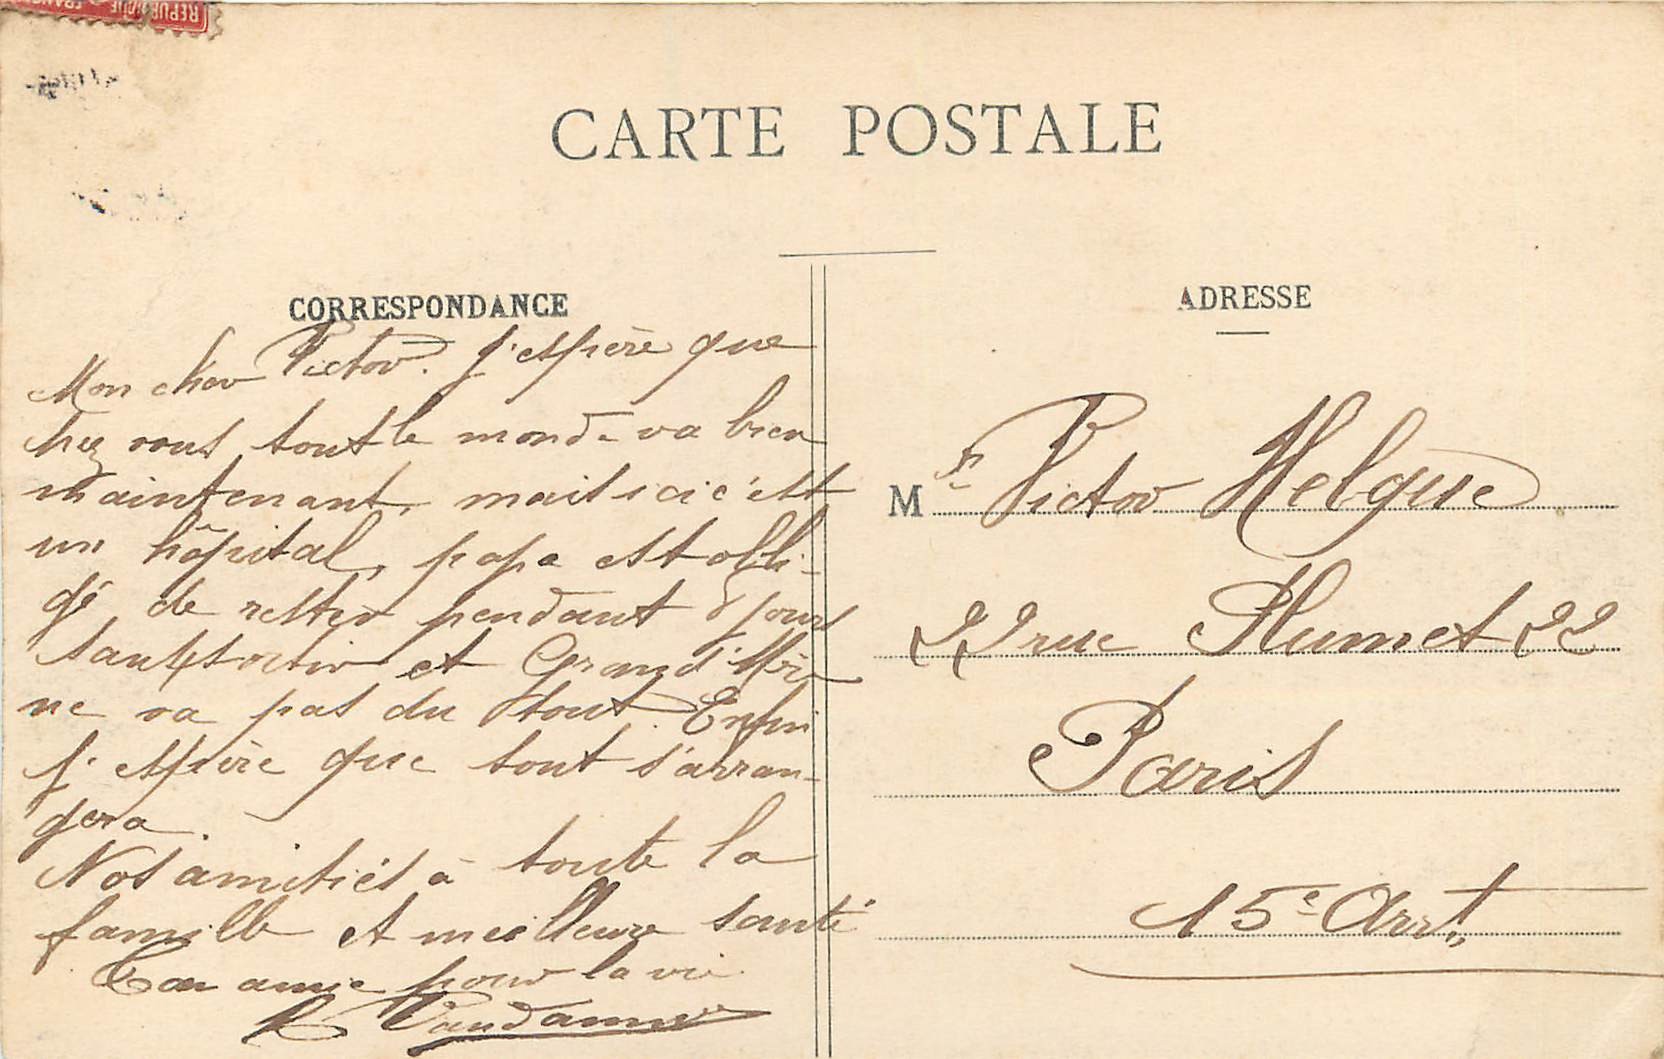 CARTE POSTALE
CORRESPONDANCE
Mon cher Victor. J'espère que
chez vous tout le monde va bien
maintenant, mais ici c'est
un hôpital, papa est obli-
gé de rester pendant 8 jours
sans sortir et Grand'Mère
ne va pas du tout. Enfin
j'espère que tout s'arran-
gera.
Nos amitiés à toute la
famille et meilleure santé
Ton amie pour la vie
Vandamme
ADRESSE
Mr Victor Helque
22 rue Plumet 22
Paris
15e Arrt